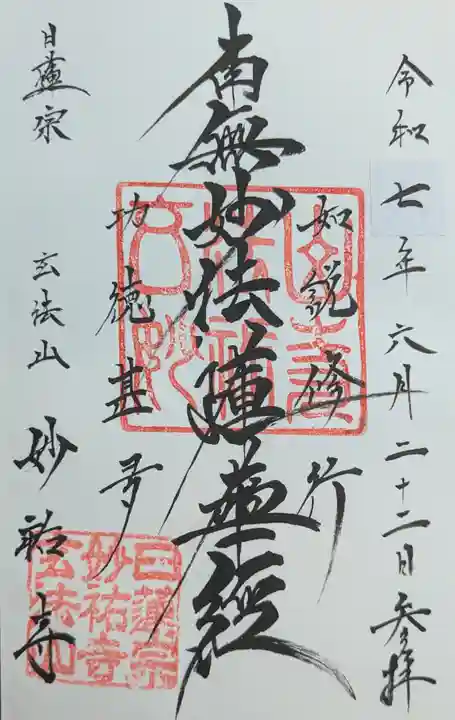 令和七年六月二十二日参拝
如説修行
南無妙法蓮華経
功徳甚多
日蓮宗
玄法山
妙祐寺
日蓮宗
妙祐寺
玄法山